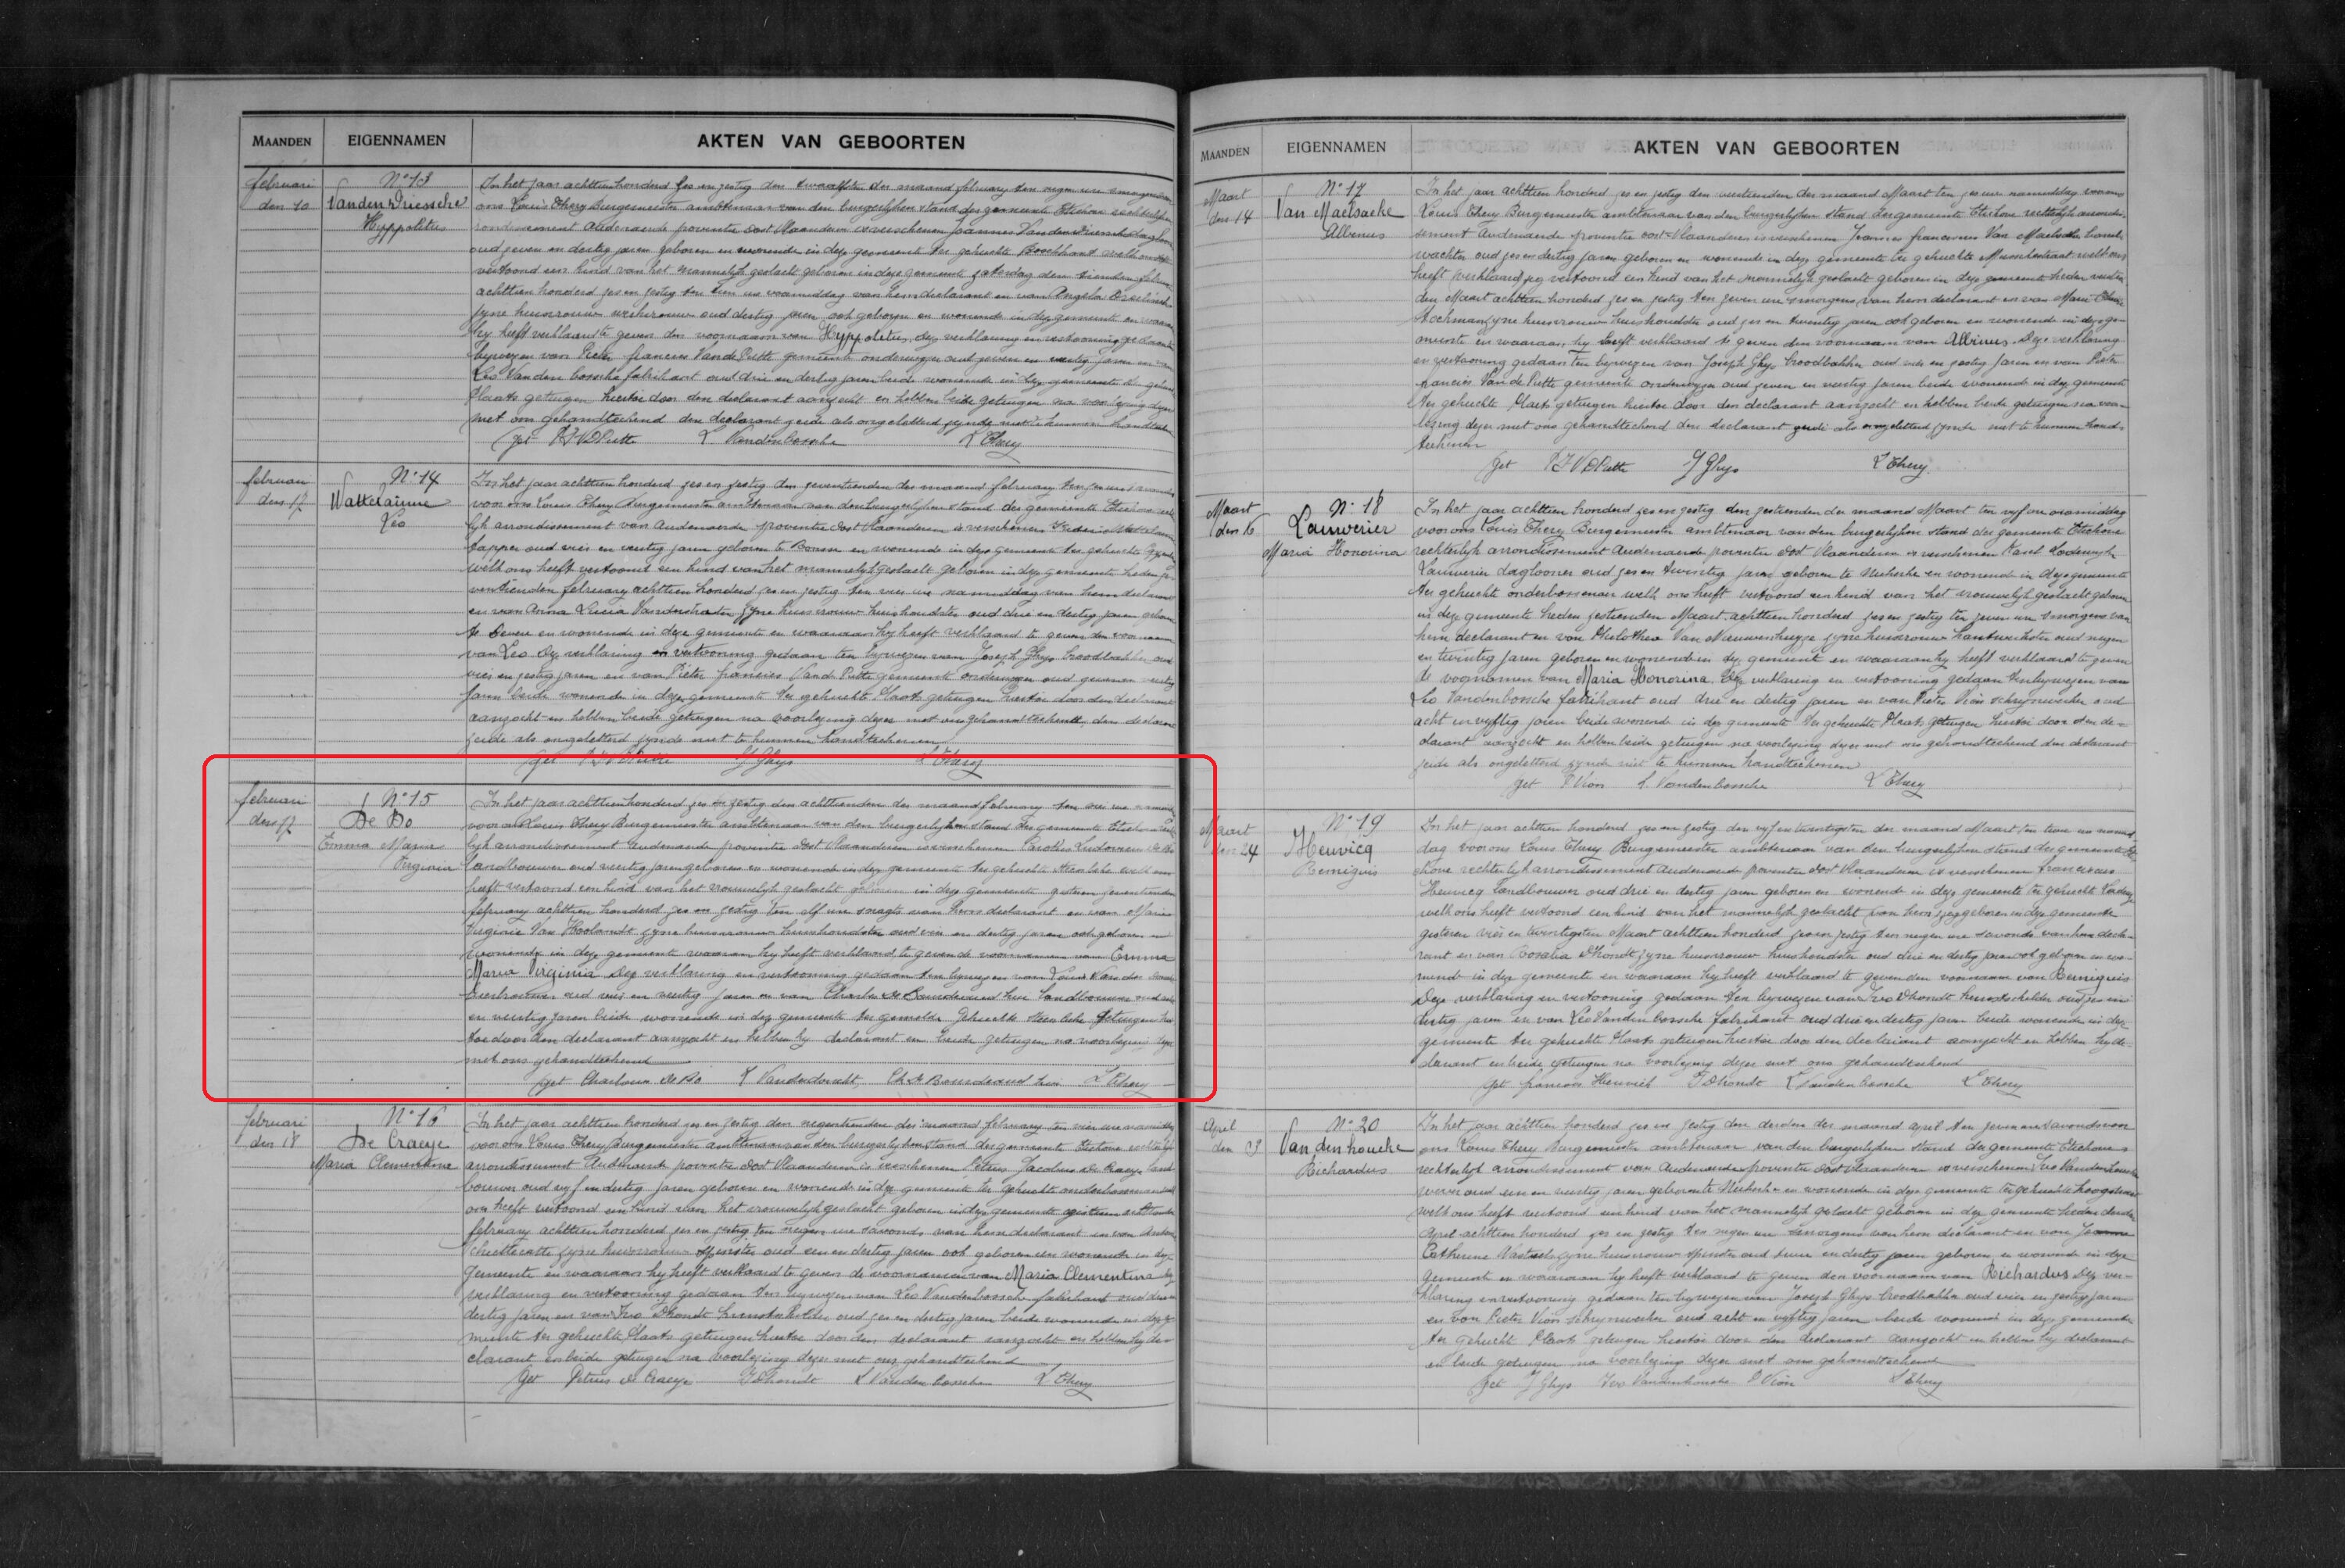 MAANDEN EIGENNAMEN AKTEN VAN GEBOORTEN
februari den 10
N° 13
Vanden Driessche
Hyppolitus
In het jaar achttien honderd zes en zestig den twaalfsten der maand february ten negen ure smorgens
ons Louis Thery Burgemeester ambtenaar van den burgerlijken stand der gemeente Etichove rechterlijk
arrondissement Audenaerde provintie Oost Vlaanderen is verschenen Joannes Vanden Driessche
oud zeven en dertig jaren geboren en wonende in deze gemeente ter gehuchte Boschkant welk ons
vertoond een kind van het mannelijk geslacht geboren in deze gemeente zaterdag den tienden
achttien honderd zes en zestig ten tien ure voormiddag van hem declarant en van Angela
zyne huisvrouw werkvrouw oud dertig jaren ook geboren en wonende in deze gemeente en waaraan
hy heeft verklaard te geven den voornaam van Hyppolitus, deze verklaring en vertooning gedaan
bywezen van Pieter francies Van de Putte gemeente onderwyzer oud zeven en veertig jaren en van
Leo Vanden bossche fabrikant oud drie en dertig jaren beide wonende in deze gemeente ter gehuchte
Plaats getuigen hiertoe door den declarant aanzocht en hebben beide getuigen na voorlezing dezer
met ons gehandteekend den declarant zeide als ongeletterd zynde niet te kunnen handteekenen
get P F V D Putte L Vandenbossche L Thery
februari den 17
N° 14
Wattelaiune
Leo
In het jaar achttien honderd zes en zestig den zeventienden der maand february ten zes ure
voor ons Louis Thery Burgemeester ambtenaar van den burgerlyken stand der gemeente Etichove
lyk arrondissement van Audenaerde provintie Oost Vlaanderen is verschenen
tapper oud vier en veertig jaren geboren te Ronsse en wonende in deze gemeente ter gehuchte
welk ons heeft vertoond een kind van het mannelyk geslacht geboren in deze gemeente heden
ventienden february achttien honderd zes en zestig ten vier ure namiddag van hem declarant
en van Anna Lucia Vanderstraeten zyne huisvrouw huishoudster oud drie en dertig jaren geboren
te en wonende in deze gemeente en waaraan hy heeft verklaard te geven den voornaam
van Leo Deze verklaring en vertooning gedaan ten bywezen van Joseph Ghys broodbakker oud
vier en zestig jaren en van Pieter francies Van de Putte gemeente onderwyzer oud zeven en veertig
jaren beide wonende in deze gemeente ter gehuchte Plaats getuigen hiertoe door den declarant
aanzocht en hebben beide getuigen na voorlezing dezer met ons gehandteekend den declarant
zeide als ongeletterd zynde niet te kunnen handteekenen
get P F V D Putte J Ghys L Thery
februari den 17
N° 15
De Bo
Emma Maria
Virginia
In het jaar achttien honderd zes en zestig den achttienden der maand february ten drie ure namid
voor ons Louis Thery Burgemeester ambtenaar van den burgerlyken stand der gemeente Etichove
lyk arrondissement Audenaerde provintie Oost Vlaanderen is verschenen Carolus Ludovicus De Bo
landbouwer oud veertig jaren geboren en wonende in deze gemeente ter gehuchte Steenbeke welk ons
heeft vertoond een kind van het vrouwelyk geslacht geboren in deze gemeente gisteren zeventienden
february achttien honderd zes en zestig ten elf ure snagts van hem declarant en van Maria
Virginie Van Hoolandt zyne huisvrouw huishoudster oud een en dertig jaren ook geboren en
wonende in deze gemeente waaraan hy heeft verklaard te geven de voornamen van Emma
Maria Virginia Deze verklaring en vertooning gedaan ten bywezen van Louis Vander
bierbrouwer oud vier en veertig jaren en van Charles De Bourdeaud'hui landbouwer oud
en veertig jaren beide wonende in deze gemeente ter gemelde gehuchte Steenbeke getuigen hier
toe door den declarant aanzocht en hebben hy declarant en beide getuigen na voorlezing dezer
met ons gehandteekend
get Charlous De Bo L Vanderdonckt, Ch De Bourdeaud hui L Thery
februari den 18
N° 16
De Craeye
Maria Clementina
In het jaar achttien honderd zes en zestig den negentienden der maand february ten vier ure namiddag
voor ons Louis Thery Burgemeester ambtenaar van den burgerlyken stand der gemeente Etichove rechterlyk
arrondissement Audenaerde provintie Oost Vlaanderen is verschenen Petrus Jacobus De Craeye land
bouwer oud vyf en dertig jaren geboren en wonende in deze gemeente ter gehuchte onderbossenaar welk
ons heeft vertoond een kind van het vrouwelyk geslacht geboren in deze gemeente gisteren achttienden
february achttien honderd zes en zestig ten negen ure savonds van hem declarant en van
zyne huisvrouw spinster oud een en dertig jaren ook geboren en wonende in deze
gemeente en waaraan hy heeft verklaard te geven de voornamen van Maria Clementina
verklaring en vertooning gedaan ten bywezen van Leo Vandenbossche fabrikant oud drie en
dertig jaren en van Ivo Dhondt oud zes en dertig jaren beide wonende in deze ge
meente ter gehuchte Plaats getuigen hiertoe door den declarant aanzocht en hebben hy de
clarant en beide getuigen na voorlezing dezer met ons gehandteekend
get Petrus De Craeye I Dhondt L Vanden bossche L Thery
MAANDEN EIGENNAMEN AKTEN VAN GEBOORTEN
Maart den 14
N° 17
Van Maelsacke
Albinus
In het jaar achttien honderd zes en zestig den veertienden der maand Maart ten zes ure namiddag voor ons
Louis Thery Burgemeester ambtenaar van den burgerlyken stand der gemeente Etichove rechterlyk arrondis-
sement Audenaerde provintie Oost-Vlaanderen is verschenen Joannes franciscus Van Maelsacke
wachter oud zes en dertig jaren geboren en wonende in deze gemeente ter gehuchte welk ons
heeft verklaard zeg vertoond een kind van het mannelyk geslacht geboren in deze gemeente heden veertien
den Maart achttien honderd zes en zestig ten zeven ure smorgens van hem declarant en van Marie
Stockman zyne huisvrouw huishoudster oud zes en twintig jaren ook geboren en wonende in deze ge-
meente en waaraan hy heeft verklaard te geven den voornaam van Albinus. Deze verklaring
en vertooning gedaan ten bywezen van Joseph Ghys broodbakker oud vier en zestig jaren en van Pieter
francies Van de Putte gemeente onderwyzer oud zeven en veertig jaren beide wonende in deze gemeente
ter gehuchte Plaats getuigen hiertoe door den declarant aanzocht en hebben beide getuigen na voor-
lezing dezer met ons gehandteekend den declarant zeide als ongeletterd zynde niet te kunnen hand-
teekenen
get P F V D Putte J Ghys L Thery.
Maart den 16
N° 18
Lauwerier
Maria Honorina
In het jaar achttien honderd zes en zestig den zestienden der maand Maart ten vyf ure namiddag
voor ons Louis Thery Burgemeester ambtenaar van den burgerlyken stand der gemeente Etichove
rechterlyk arrondissement Audenaerde provintie Oost Vlaanderen is verschenen Karel Lodewyk
Lauwerier daglooner oud zes en twintig jaren geboren te Nukerke en wonende in deze gemeente
ter gehucht onderbossenaar welk ons heeft vertoond een kind van het vrouwelyk geslacht geboren
in deze gemeente heden zestienden Maart achttien honderd zes en zestig ten zeven ure smorgens van
hem declarant en van Philothea Van Nieuwenhuyze zyne huisvrouw kantwerkster oud negen
en twintig jaren geboren en wonende in deze gemeente en waaraan hy heeft verklaard te geven
de voornamen van Maria Honorina. Deze verklaring en vertooning gedaan ten bywezen van
Leo Vandenbossche fabrikant oud drie en dertig jaren en van Pieter Vion schrynwerker oud
acht en vyftig jaren beide wonende in deze gemeente ter gehuchte Plaats getuigen hiertoe door den de-
clarant aanzocht en hebben beide getuigen na voorlezing dezer met ons gehandteekend den declarant
zeide als ongeletterd zynde niet te kunnen handteekenen
get P Vion L. Vandenbossche L Thery
Maart den 24
N° 19
Heuvicq
Remigius
In het jaar achttien honderd zes en zestig den vyf en twintigsten der maand Maart ten twee ure namid
dag voor ons Louis Thery Burgemeester ambtenaar van den burgerlyken stand der gemeente Eti-
chove rechterlyk arrondissement Audenaerde provintie Oost Vlaanderen is verschenen franciscus
Heuvicq landbouwer oud drie en dertig jaren geboren en wonende in deze gemeente ter gehucht
welk ons heeft vertoond een kind van het mannelyk geslacht van hem zeg geboren in deze gemeente
gisteren vier en twintigsten Maart achttien honderd zes en zestig ten negen ure savonds van hem decla-
rant en van Rosalia Dhondt zyne huisvrouw huishoudster oud drie en dertig jaren ook geboren en wo-
nende in deze gemeente en waaraan hy heeft verklaard te geven den voornaam van Remigius
Deze verklaring en vertooning gedaan ten bywezen van Ivo Dhondt oud zes en
dertig jaren en van Leo Vanden bossche fabrikant oud drie en dertig jaren beide wonende in deze
gemeente ter gehuchte Plaats getuigen hiertoe door den declarant aanzocht en hebben hy de-
clarant en beide getuigen na voorlezing dezer met ons gehandteekend
get francois Heuvick I Dhondt L Vanden bossche L Thery
April den 03
N° 20
Van den houcke
Richardus
In het jaar achttien honderd zes en zestig den derden der maand april ten zeven ure savonds voor
ons Louis Thery Burgemeester ambtenaar van den burgerlyken stand der gemeente Etichove
rechterlyk arrondissement van Audenaerde provintie Oost Vlaanderen is verschenen Ivo Vandenhoucke
wever oud een en veertig jaren geboren te Nukerke en wonende in deze gemeente ter gehuchte
welk ons heeft vertoond een kind van het mannelyk geslacht geboren in deze gemeente heden derden
April achttien honderd zes en zestig ten negen ure smorgens van hem declarant en van Joanna
Catherine zyne huisvrouw spinster oud twee en dertig jaren geboren en wonende in deze
gemeente en waaraan hy heeft verklaard te geven den voornaam van Richardus Deze ver-
klaring en vertooning gedaan ten bywezen van Joseph Ghys broodbakker oud vier en zestig jaren
en van Pieter Vion schrynwerker oud acht en vyftig jaren beide wonende in deze gemeente
ter gehucht Plaats getuigen hiertoe door den declarant aanzocht en hebben hy declarant
en beide getuigen na voorlezing dezer met ons gehandteekend
get J Ghys Ivo Vandenhoucke P Vion L Thery